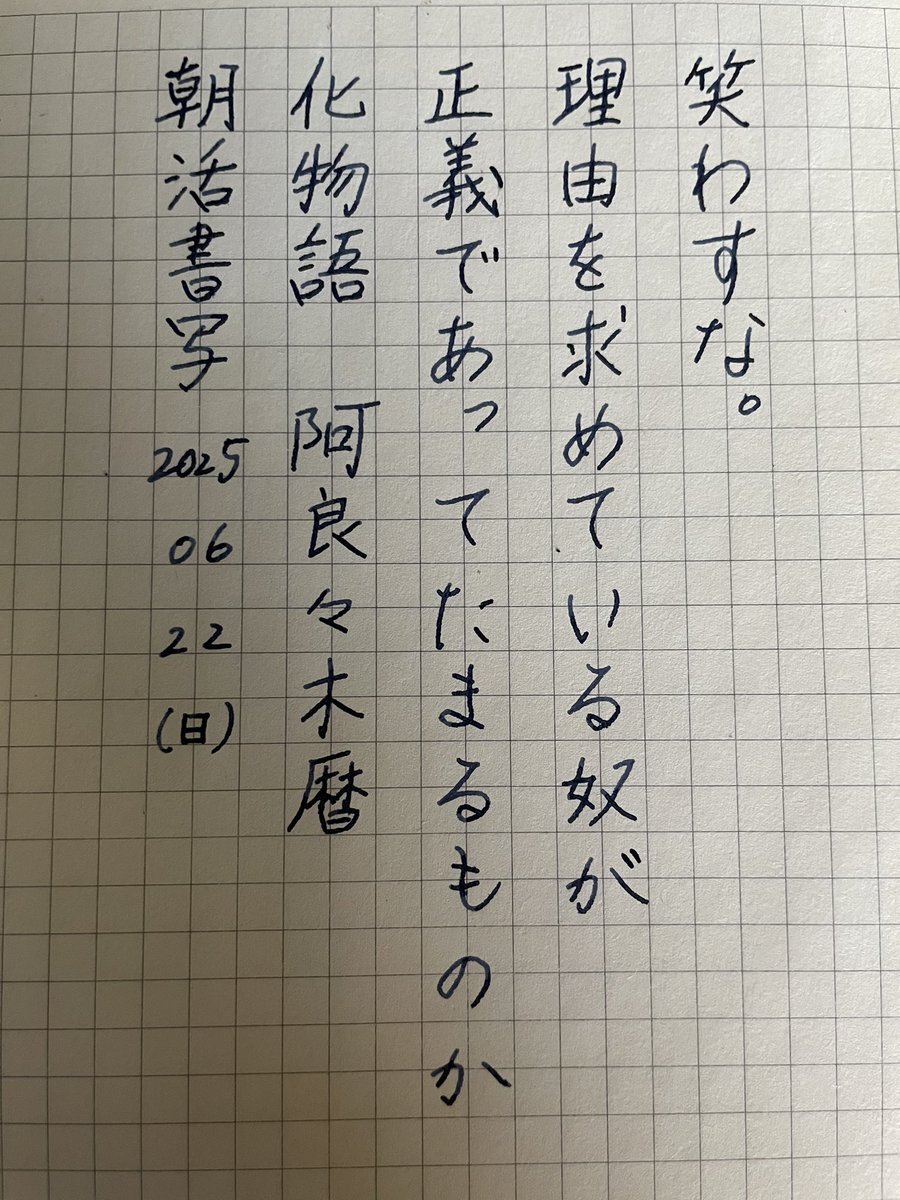 笑わすな。
理由を求めている奴が
正義であってたまるものか
化物語 阿良々木暦
朝活書写 2025 06 22 (日)